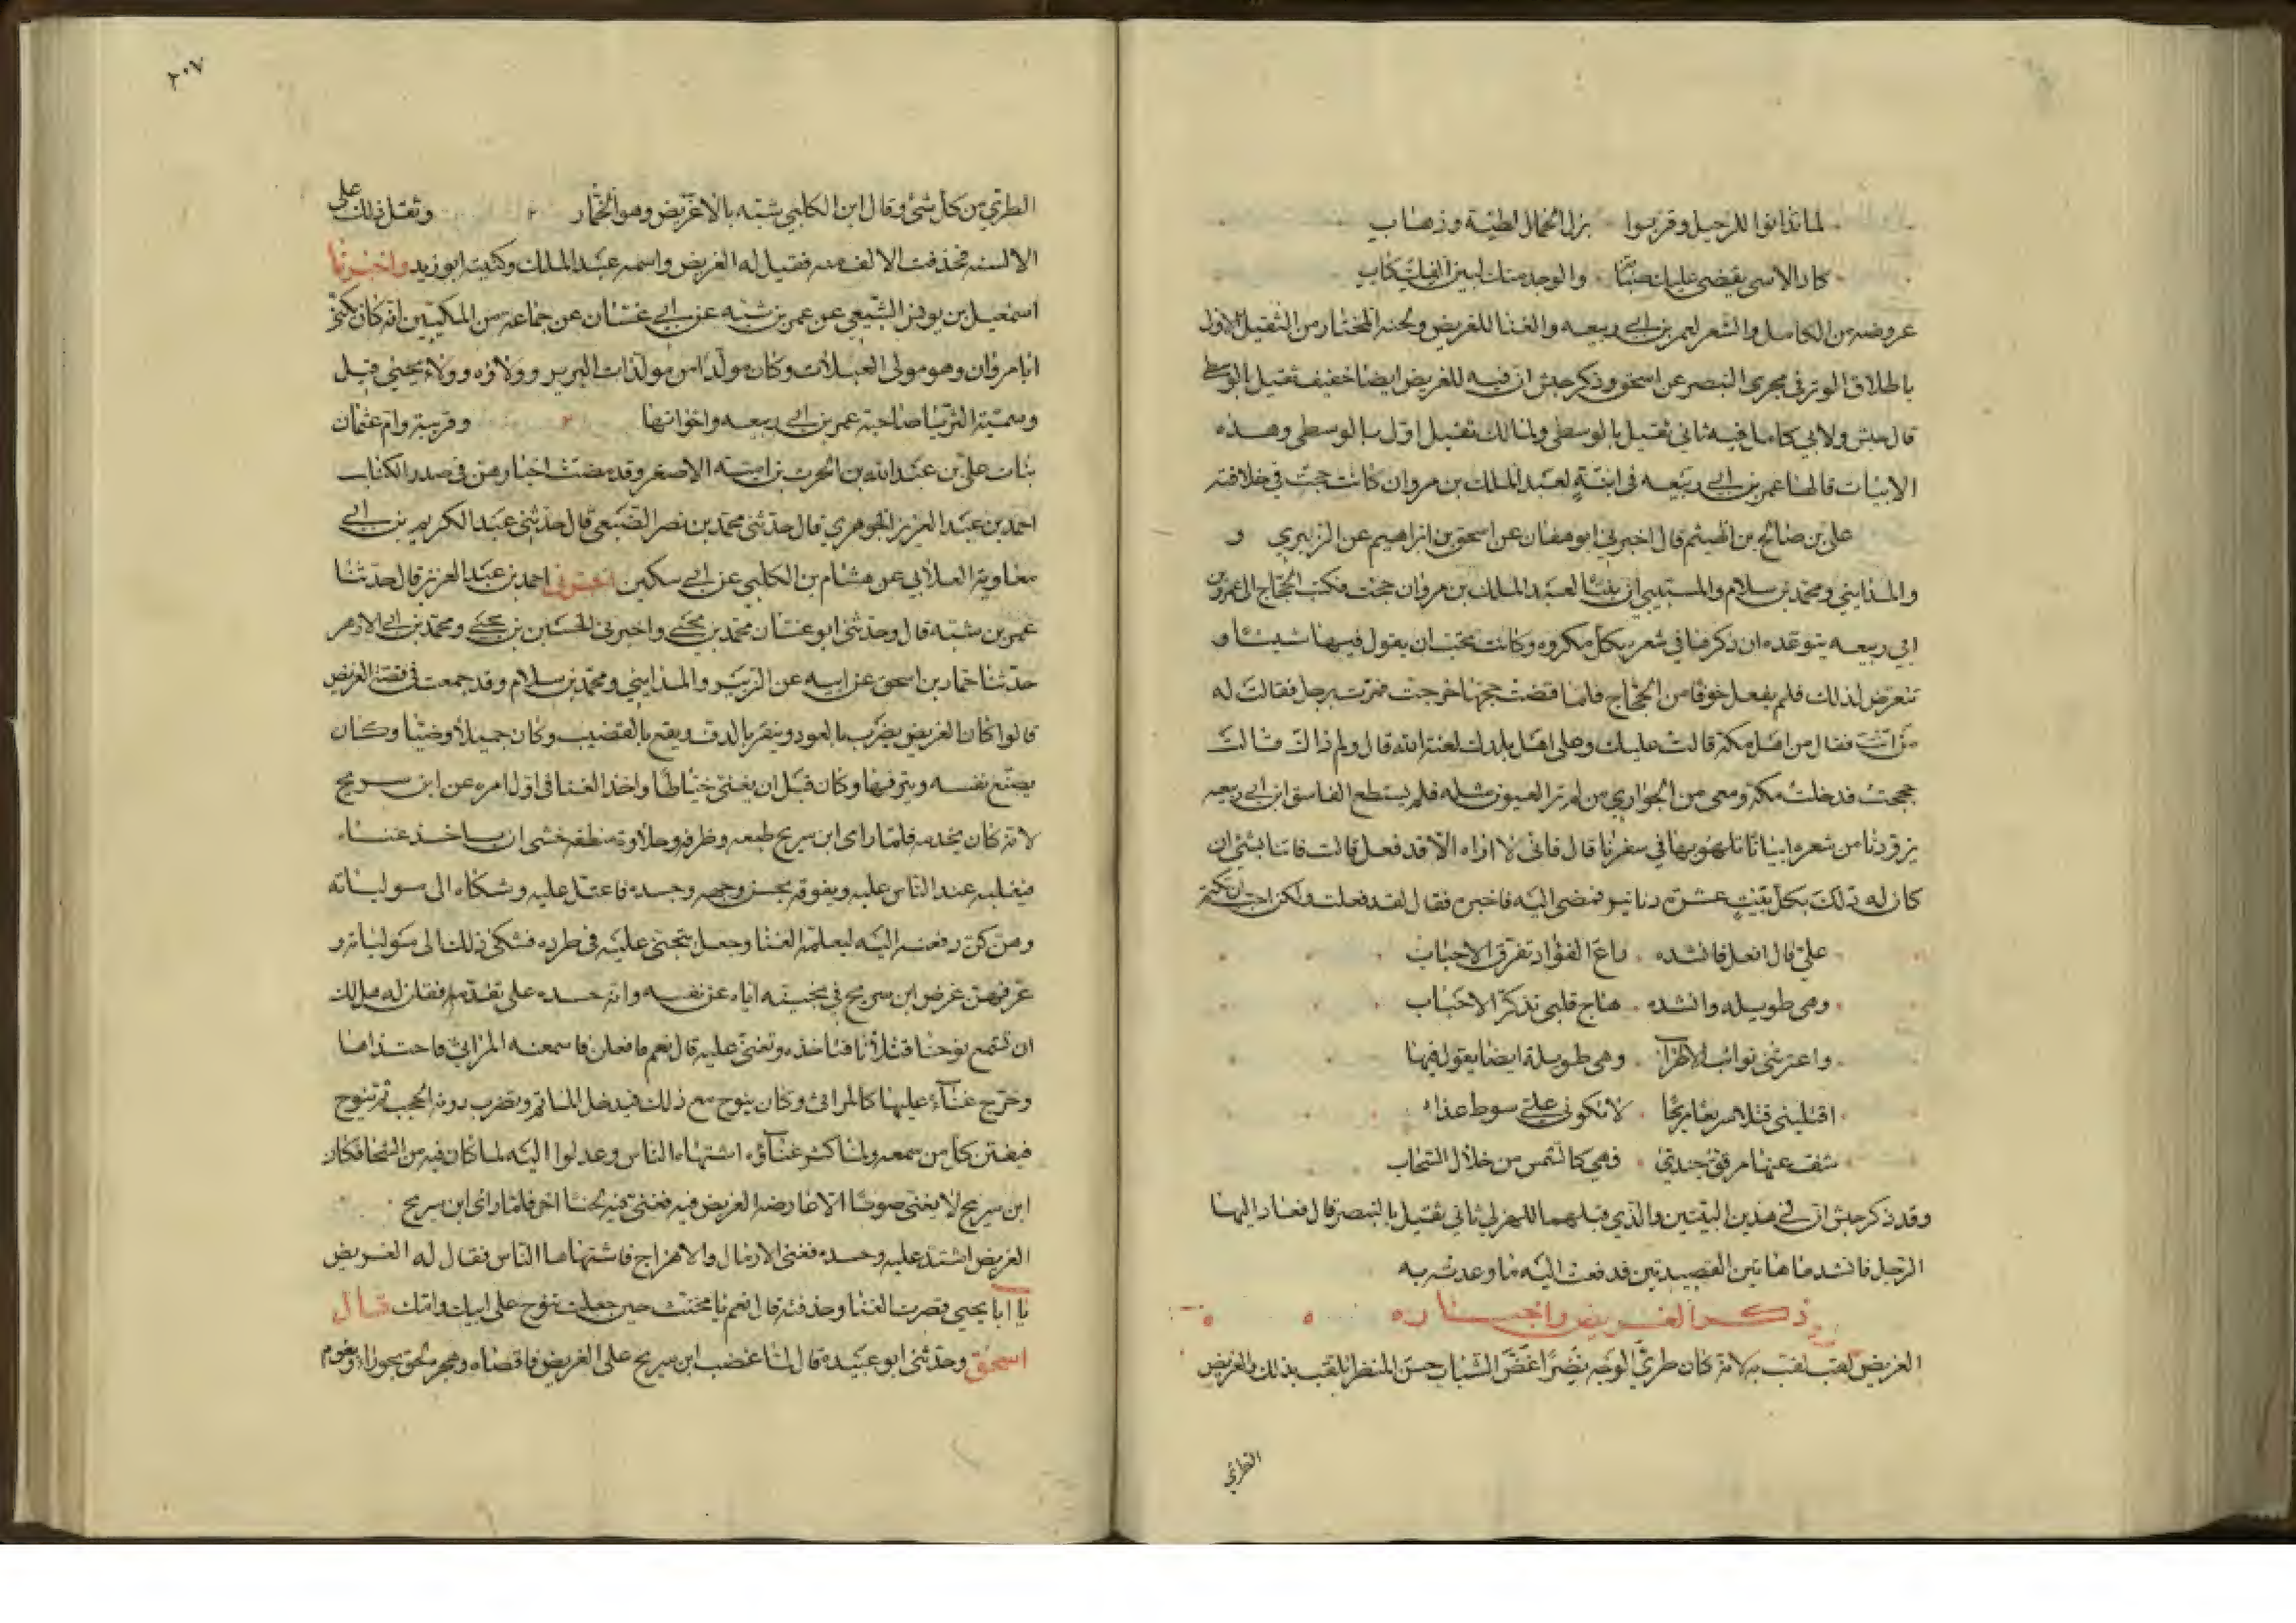 لما تذانوا للرحيل وقربوا بزل الجمال لطية وذهاب
كاد الاسى يقضي عليك صبابة والوجد منك لبين الفك كتاب
عروضه من الكامل والشعر لعمر بن ابي ربيعه والغنا للغريض ولحنه المختار من الثقيل الاول
باطلاق الوتر في مجرى البنصر عن اسحق وذكر حبش ان فيه للغريض ايضا خفيف ثقيل بالوسطى
قال حبش ولابي كامل فيه ثاني ثقيل بالوسطى ولمالك ثقيل اول بالوسطى وهذه
الابيات قالها عمر بن ابي ربيعه في ابنة لعبد الملك بن مروان كانت حجت في خلافته
علي بن صالح بن الهيثم قال اخبرني ابو هفان عن اسحق بن ابراهيم عن الزبيري و
والمدايني ومحمد بن سلام والمسيبي ان بنتا لعبد الملك بن مروان حجت فكتب الحجاج الى عمر بن
ابي ربيعه يتوعده ان ذكرها في شعره بكل مكروه وكانت تحب ان يقول فيها شيئا و
تتعرض لذلك فلم يفعل خوفا من الحجاج فلما قضت حجها خرجت فمرت برجل فقالت له
من انت فقال من اهل مكة قالت عليك وعلى اهل بلدك لعنة الله قال ولم ذاك قالت
حججت فدخلت مكة ومعي من الجواري من لم تر العيون مثله فلم يستطع الفاسق ابن ابي ربيعه
يزودنا من شعره ابياتا نلهو بها في سفرنا قال فاني لا اراه الا قد فعل قالت فاتنا بشئ ان
كان له ذلك بكل بيت عشرة دنانير فمضى اليه فاخبره فقال لقد فعلت ولكن احب ان تكتم
علي قال افعل فانشده راع الفؤاد تفرق الاحباب
وهي طويله وانشده هاج قلبي تذكر الاحباب
واعترتني نوائب الاطراب وهي طويلة ايضا يقول فيها
اقتليني قتلا سريعا مريحا لا تكوني علي سوط عذاب
شف عنها مرقق جندي فهي كالشمس من خلال السحاب
وقد ذكر حبش ان في هذين البيتين والذي قبلهما للهزلي ثاني ثقيل بالبنصر قال فعاد اليها
الرجل فانشدها هاتين القصيدتين فدفعت اليه ما وعدته به
ذكر الغريض واخباره
الغريض لقب لقب به لانه كان طري الوجه نضرا غض الشباب حسن المنظر فلقب بذلك والغريض
الطري
٢٠٧
الطري من كل شئ وقال ابن الكلبي شبه بالاغريض وهو الجمار وثقل ذلك على
الالسنه فحذفت الالف منه فقيل له الغريض واسمه عبد الملك وكنيته ابو زيد واخبرنا
اسمعيل بن يونس الشيعي عن عمر بن شبه عن ابي غسان عن جماعه من المكيين انه كان يكنى
ابا مروان وهو مولى العبلات وكان مولدا من مولدات البربر وولاؤه وولاء يحيى قيل
وسمية الثريا صاحبة عمر بن ابي ربيعه واخواتها وقريبة وام عثمان
بنات علي بن عبد الله بن الحرث بن امية الاصغر وقد مضت اخبارهن في صدر الكتاب
احمد بن عبد العزيز الجوهري قال حدثني محمد بن نصر الضبعي قال حدثني عبد الكريم بن ابي
معاوية العلابي عن هشام بن الكلبي عن ابي سكين اخبرني احمد بن عبد العزيز قال حدثنا
عمر بن شبه قال وحدثني ابو غسان محمد بن يحيى واخبرني الحسين بن يحيى ومحمد بن ابي الازهر
حدثنا حماد بن اسحق عن ابيه عن الزبير والمدايني ومحمد بن سلام وقد جمعت في قصة الغريض
قالوا كان الغريض يضرب بالعود وينقر بالدف ويقع بالقضيب وكان جميلا وضيئا وكان
يصنع نفسه ويترفها وكان قبل ان يغني خياطا واخذ الغنا في اول امره عن ابن سريج
لانه كان يخدمه فلما راى ابن سريج طبعه وظرفه وحلاوة منطقه خشى ان ياخذ غناء
فيغلبه عند الناس عليه ويفوقه بحسن وجهه وجسده فاعتل عليه وشكاه الى مولياته
وهن كن دفعنه اليه ليعلمه الغنا وجعل يتجنى عليه في طرده فشكى ذلك الى مولياته و
عرفهن غرض ابن سريج في تنحيته اياه عن نفسه وانه حسده على تقدمه فقلن له هل لك
ان تسمع نوحنا قتلانا فتاخذه وتغني عليه قال نعم فافعلن فاسمعنه المراثي فاحتذاها
وخرج غناء عليها كالمراثي وكان ينوح مع ذلك فيدخل الماتم وتضرب دونه الحجب ثم ينوح
فيفتن كل من سمعه ولما كثر غناؤه اشتهاه الناس وعدلوا اليه لما كان فيه من الشجا فكان
ابن سريج لا يغني صوتا الا عارضه الغريض فيه فغنى فيه لحنا اخر فلما راى ابن سريج
الغريض اشتد عليه وحسده فغنى الارمال والاهزاج فاشتهاها الناس فقال له الغريض
يا ابا يحيى قصرت الغنا وحذفته قال نعم يا مخنث حين جعلت تنوح على ابيك وامك قال
اسحق وحدثني ابو عبيده قال لما غضب ابن سريج على الغريض فاقصاه وهجره لحق بحوراء وبغوم